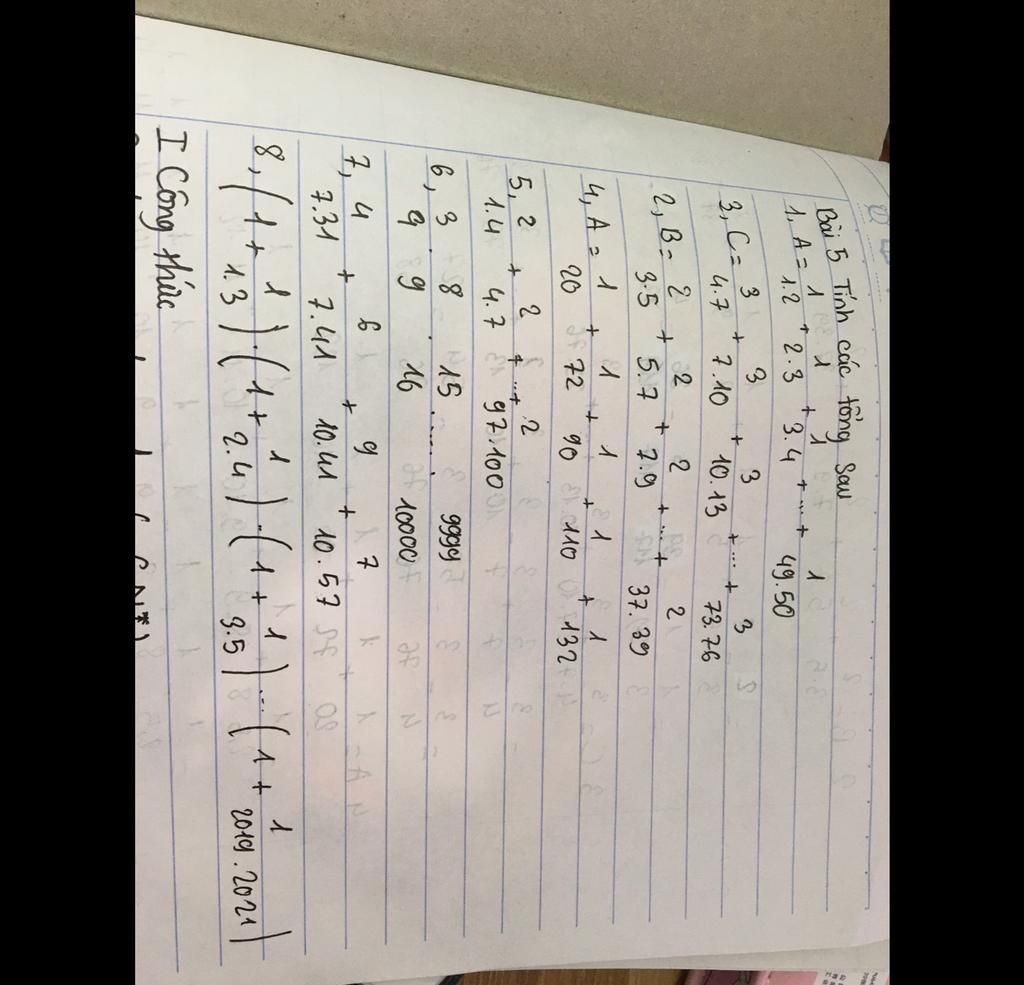 Bài 5 Tính các tổng sau
1, A = 1/1.2 + 1/2.3 + 1/3.4 + ... + 1/49.50
3, C = 3/4.7 + 3/7.10 + 3/10.13 + ... + 3/73.76
2, B = 2/3.5 + 2/5.7 + 2/7.9 + ... + 2/37.39
4, A = 1/20 + 1/72 + 1/90 + 1/110 + 1/132
5, 2/1.4 + 2/4.7 + ... + 2/97.100
6, 3/9 . 8/9 . 15/16 . ...... . 9999/10000
7, 4/7.31 + 6/7.41 + 9/10.41 + 7/10.57
8, (1 + 1/1.3) . (1 + 1/2.4) . (1 + 1/3.5) ... (1 + 1/2019.2021)
I Công thức